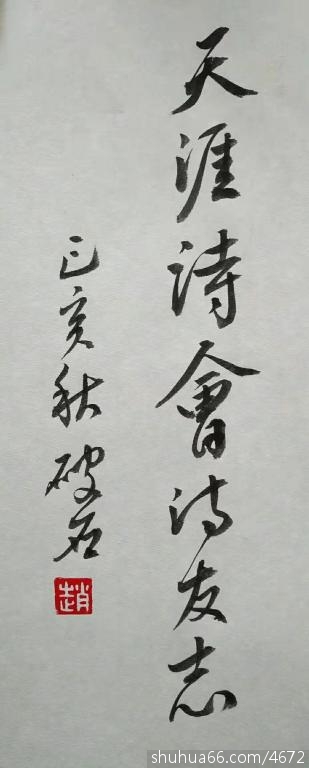 天涯诗會诗友志
己亥秋 破石
趙
shuhua66.com/4672